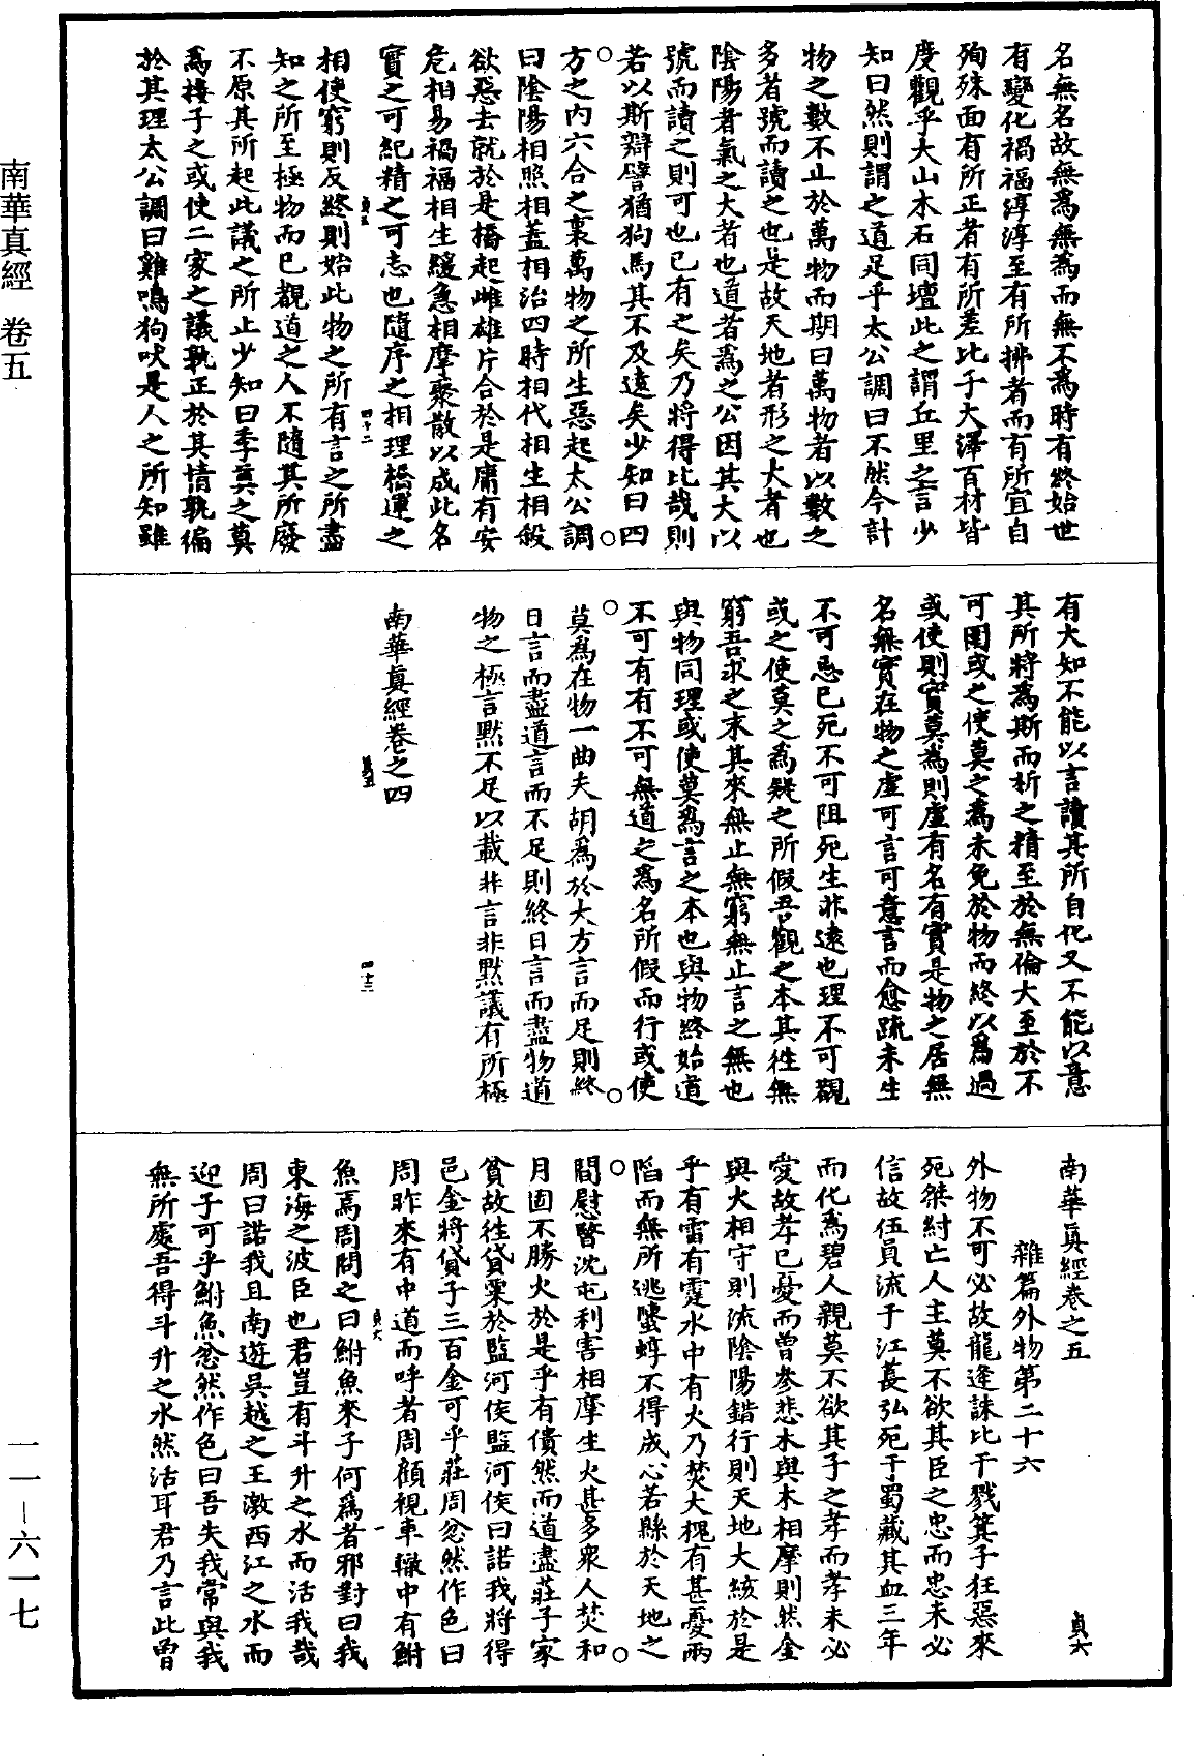 南華真經　卷五
一一－六一七
名無名故無為無為而無不為時有終始世
有變化禍福淳淳至有所拂者而有所宜自
殉殊面有所正者有所差比于大澤百材皆
度觀乎大山木石同壇此之謂丘里之言少
知曰然則謂之道足乎太公調曰不然今計
物之數不止於萬物而期曰萬物者以數之
多者號而讀之也是故天地者形之大者也
陰陽者氣之大者也道者為之公因其大以
號而讀之則可也已有之矣乃將得比哉則
若以斯辯譬猶狗馬其不及遠矣少知曰四
方之內六合之裏萬物之所生惡起太公調
曰陰陽相照相蓋相治四時相代相生相殺
欲惡去就於是橋起雌雄片合於是庸有安
危相易禍福相生緩急相摩聚散以成此名
實之可紀精之可志也隨序之相理橋運之
貞五
四十二
相使窮則反終則始此物之所有言之所盡
知之所至極物而已觀道之人不隨其所廢
不原其所起此議之所止少知曰季真之莫
為接子之或使二家之議孰正於其情孰徧
於其理太公調曰雞鳴狗吠是人之所知雖
有大知不能以言讀其所自化又不能以意
其所將為斯而析之精至於無倫大至於不
可圍或之使莫之為未免於物而終以為過
或使則實莫為則虛有名有實是物之居無
名無實在物之虛可言可意言而愈疏未生
不可忌已死不可阻死生非遠也理不可覩
或之使莫之為疑之所假吾觀之本其往無
窮吾求之末其來無止無窮無止言之無也
與物同理或使莫為言之本也與物終始道
不可有有不可無道之為名所假而行或使
莫為在物一曲夫胡為於大方言而足則終
日言而盡道言而不足則終日言而盡物道
物之極言黙不足以載非言非黙議有所極
南華真經卷之四
貞五
四十三
南華真經卷之五
貞六
雜篇外物第二十六
外物不可必故龍逄誅比干戮箕子狂惡來
死桀紂亡人主莫不欲其臣之忠而忠未必
信故伍員流于江萇弘死于蜀藏其血三年
而化為碧人親莫不欲其子之孝而孝未必
愛故孝己憂而曾參悲木與木相摩則然金
與火相守則流陰陽錯行則天地大絯於是
乎有雷有霆水中有火乃焚大槐有甚憂兩
陷而無所逃螴蜳不得成心若縣於天地之
間慰暋沈屯利害相摩生火甚多衆人焚和
月固不勝火於是乎有僓然而道盡莊子家
貧故往貸粟於監河侯監河侯曰諾我將得
邑金將貸子三百金可乎莊周忿然作色曰
周昨來有中道而呼者周顧視車轍中有鮒
貞六
一
魚焉周問之曰鮒魚來子何為者邪對曰我
東海之波臣也君豈有斗升之水而活我哉
周曰諾我且南遊吳越之王激西江之水而
迎子可乎鮒魚忿然作色曰吾失我常與我
無所處吾得斗升之水然活耳君乃言此曾